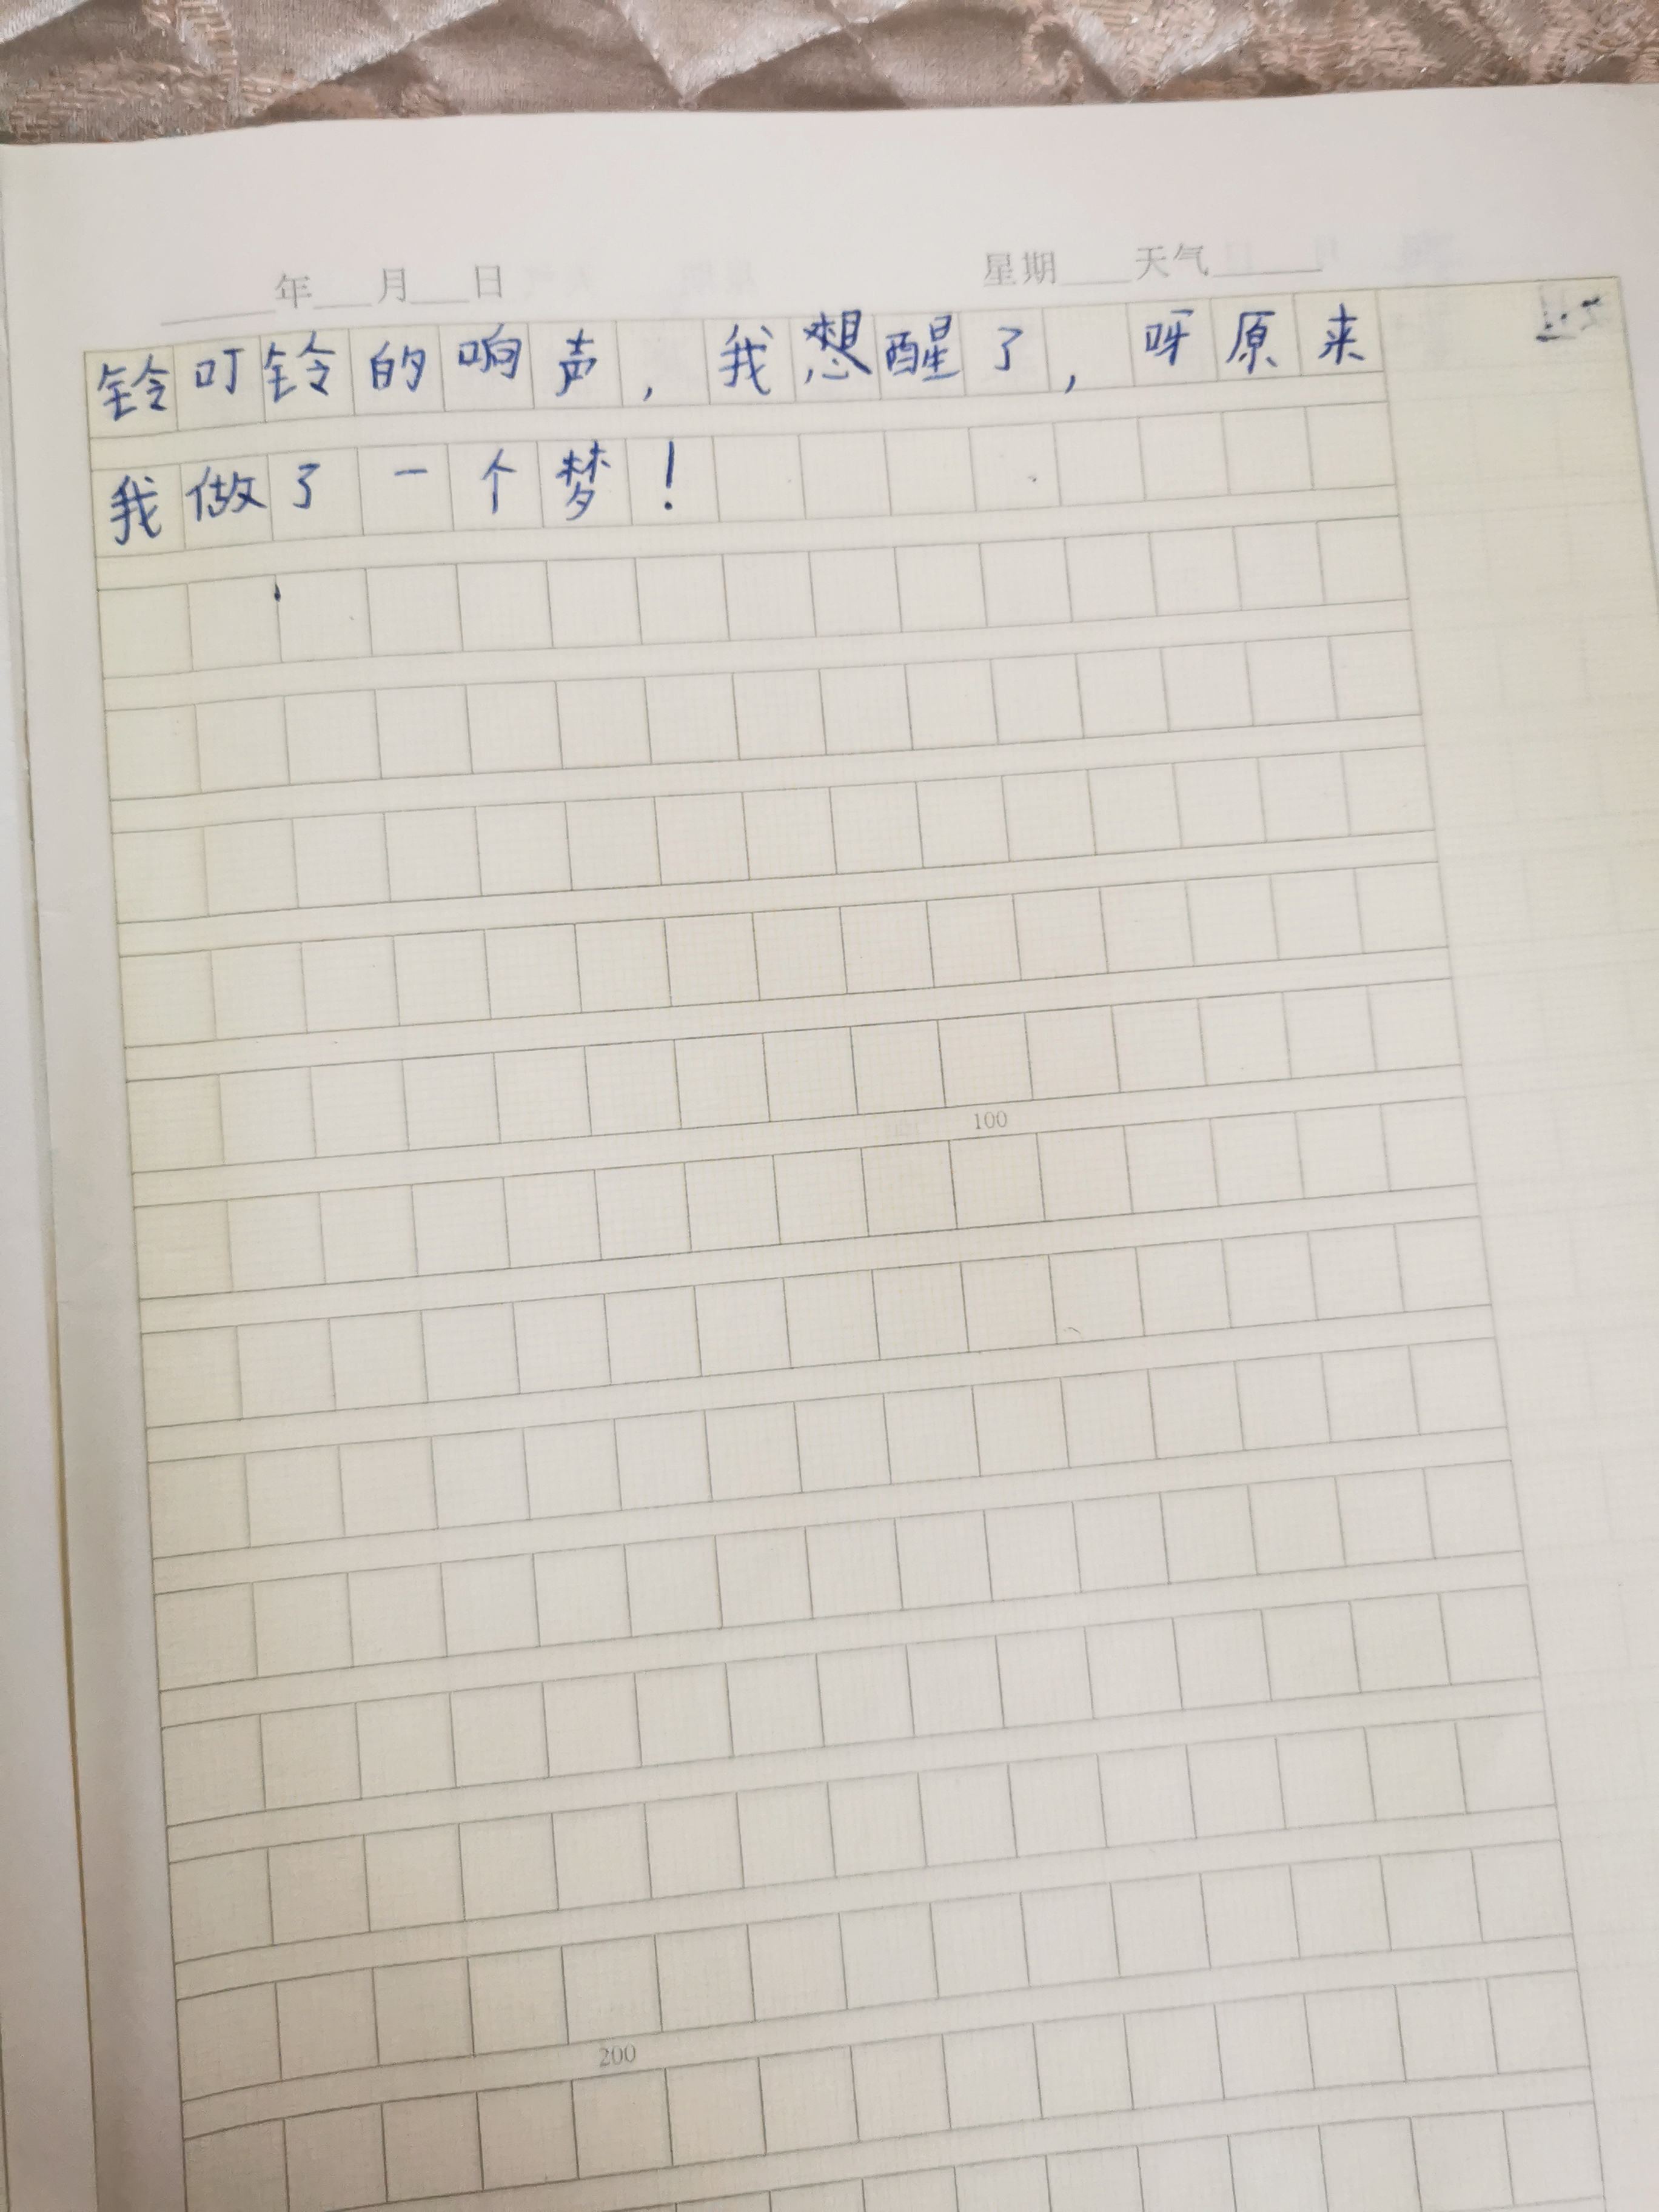 年 月 日 星期 天气
铃叮铃的响声，我想醒了，呀原来
我做了一个梦！
100
200